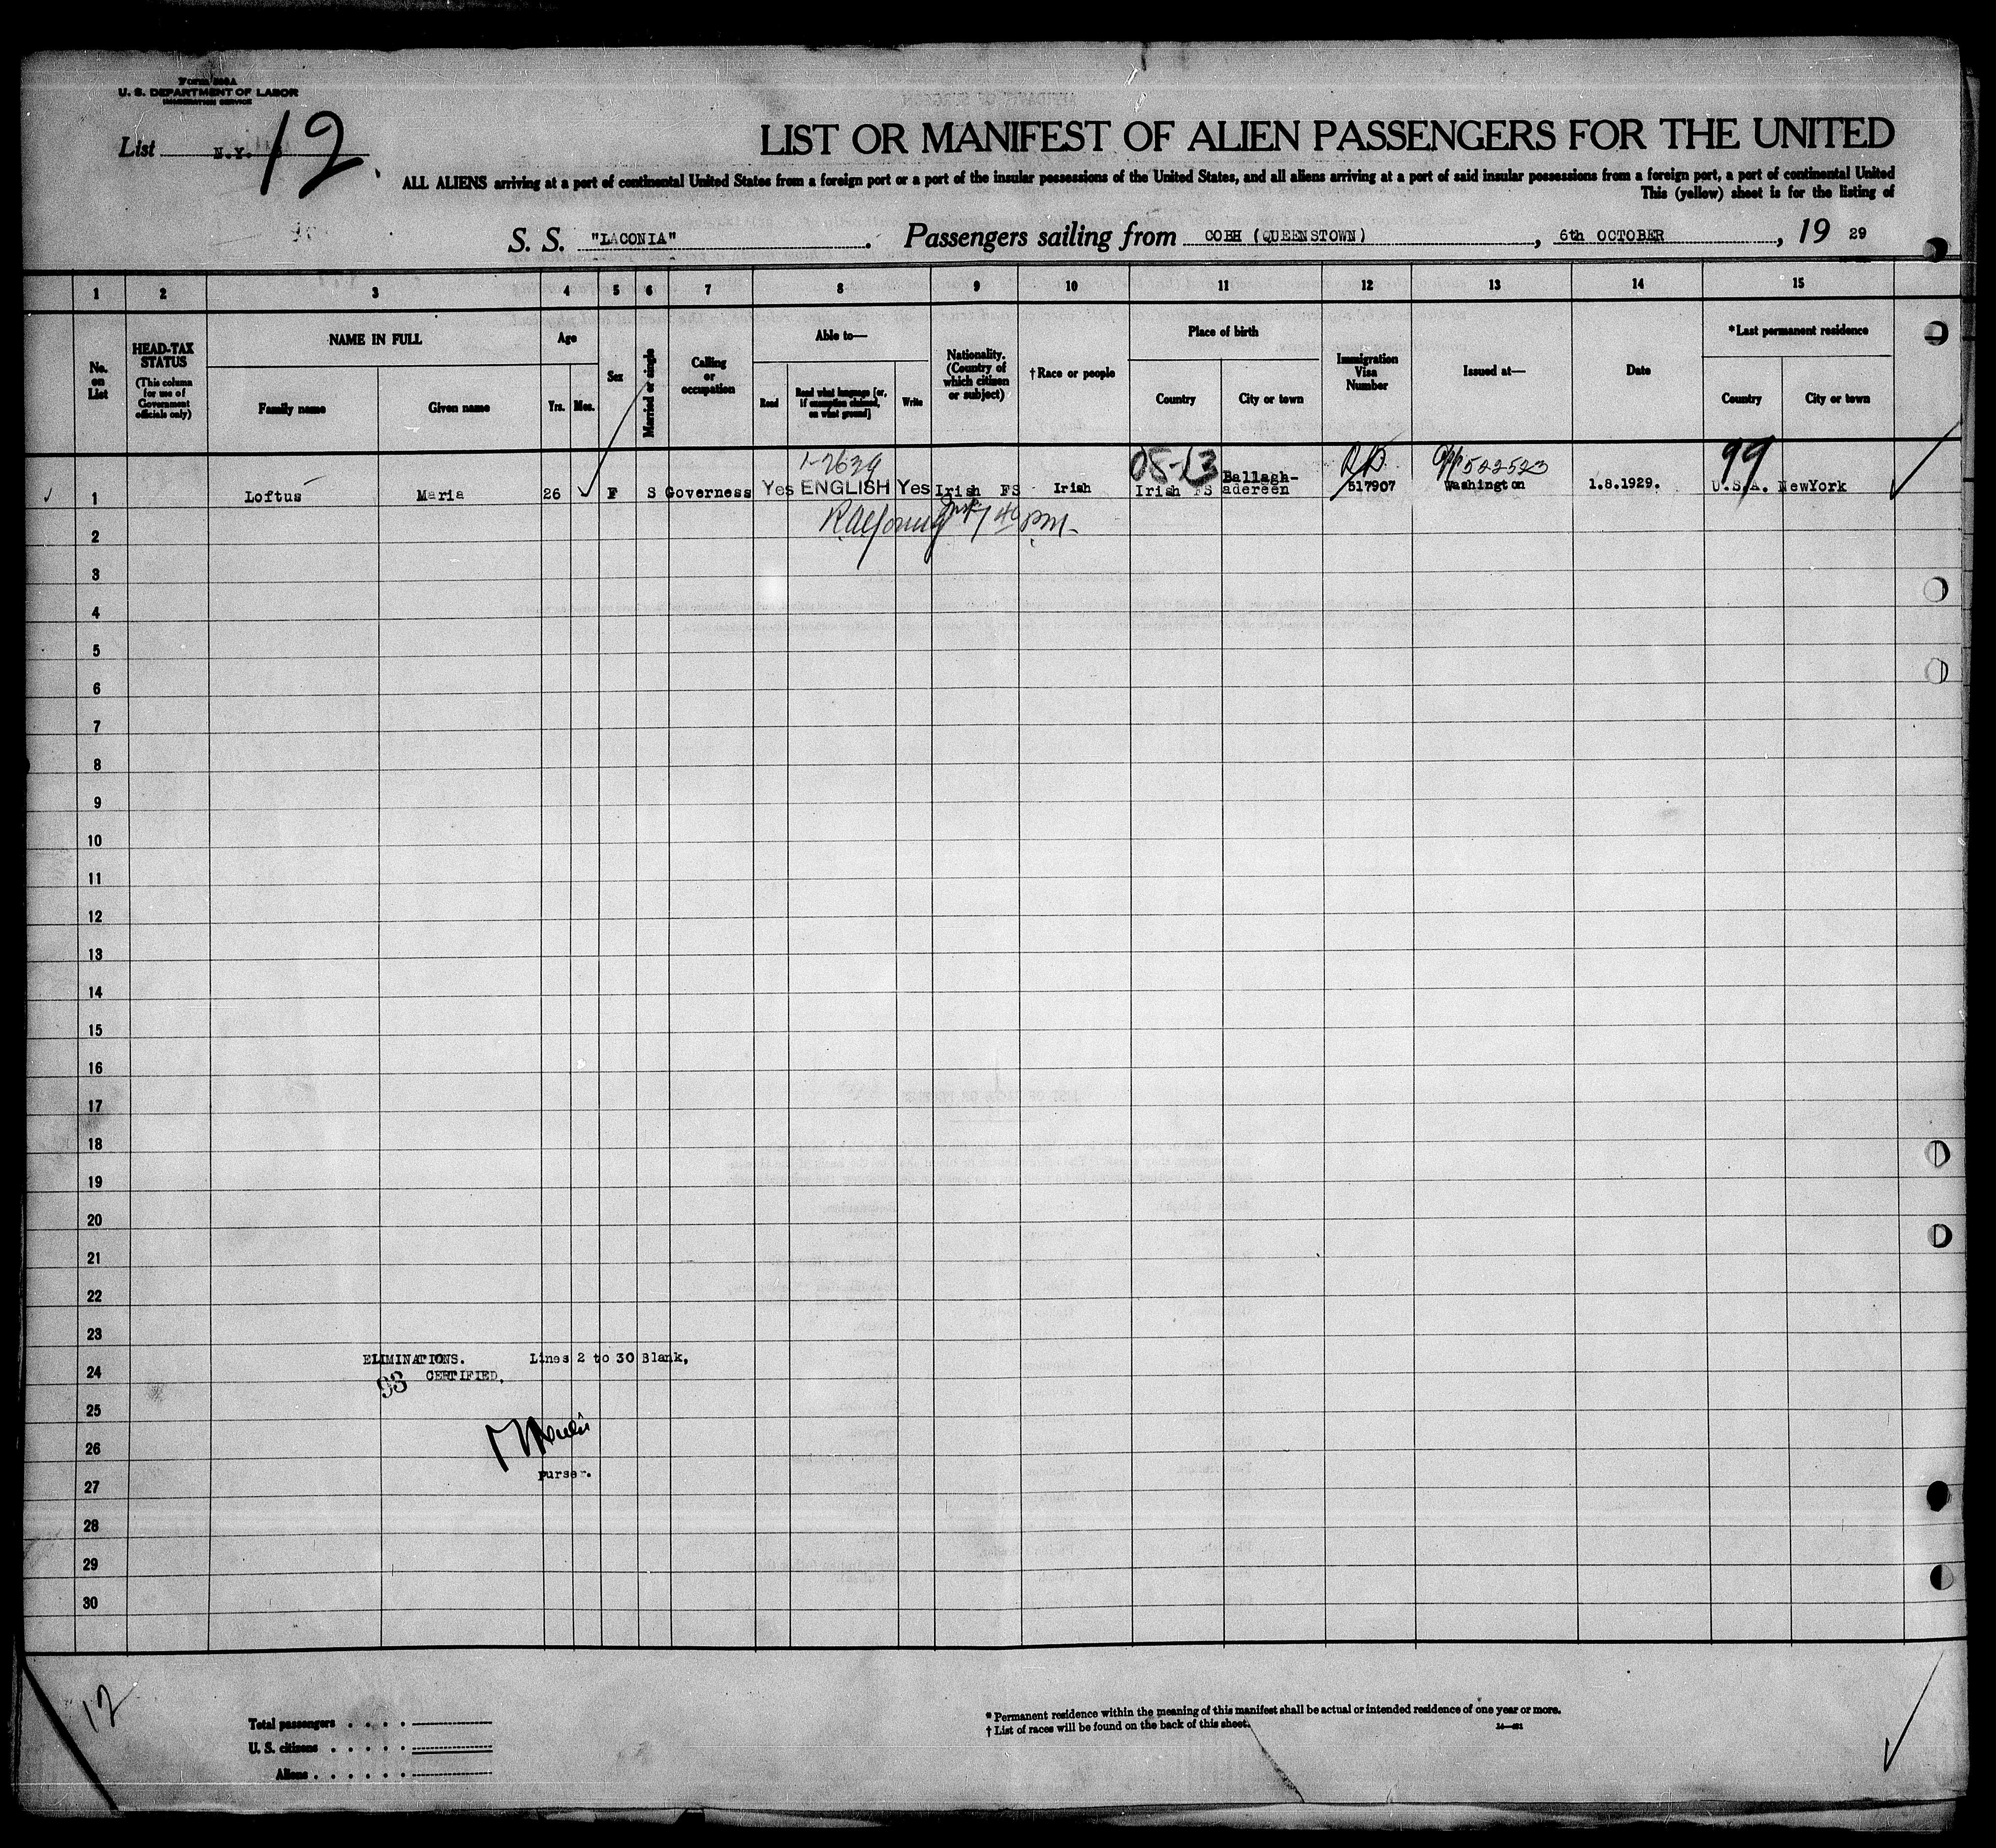 Form 500A
U. S. DEPARTMENT OF LABOR
IMMIGRATION SERVICE
List N.Y. 12.
LIST OR MANIFEST OF ALIEN PASSENGERS FOR THE UNITED
ALL ALIENS arriving at a port of continental United States from a foreign port or a port of the insular possessions of the United States, and all aliens arriving at a port of said insular possessions from a foreign port, a port of continental United
This (yellow) sheet is for the listing of
S. S. "LACONIA". Passengers sailing from COBH (QUEENSTOWN), 6th OCTOBER, 19 29
1 2 3 4 5 6 7 8 9 10 11 12 13 14 15
No. on List
HEAD-TAX STATUS (This column for use of Government officials only)
NAME IN FULL
Family name Given name
Age
Yrs. Mos.
Sex
Married or single
Calling or occupation
Able to—
Read Read what language [or, if exemption claimed, on what ground] Write
Nationality. (Country of which citizen or subject)
†Race or people
Place of birth
Country City or town
Immigration Visa Number
Issued at—
Date
*Last permanent residence
Country City or town
1-2639 08-13 522523 99
1 Loftus Maria 26 F S Governess Yes ENGLISH Yes Irish FS Irish Irish FS Ballagh-adereen 517907 Washington 1.8.1929. U.S.A. NewYork
2
3
4
5
6
7
8
9
10
11
12
13
14
15
16
17
18
19
20
21
22
23
24
25
26
27
28
29
30
ELIMINATIONS. Lines 2 to 30 Blank,
93 CERTIFIED.
purser.
12
Total passengers
U. S. citizens
Aliens
* Permanent residence within the meaning of this manifest shall be actual or intended residence of one year or more.
† List of races will be found on the back of this sheet.